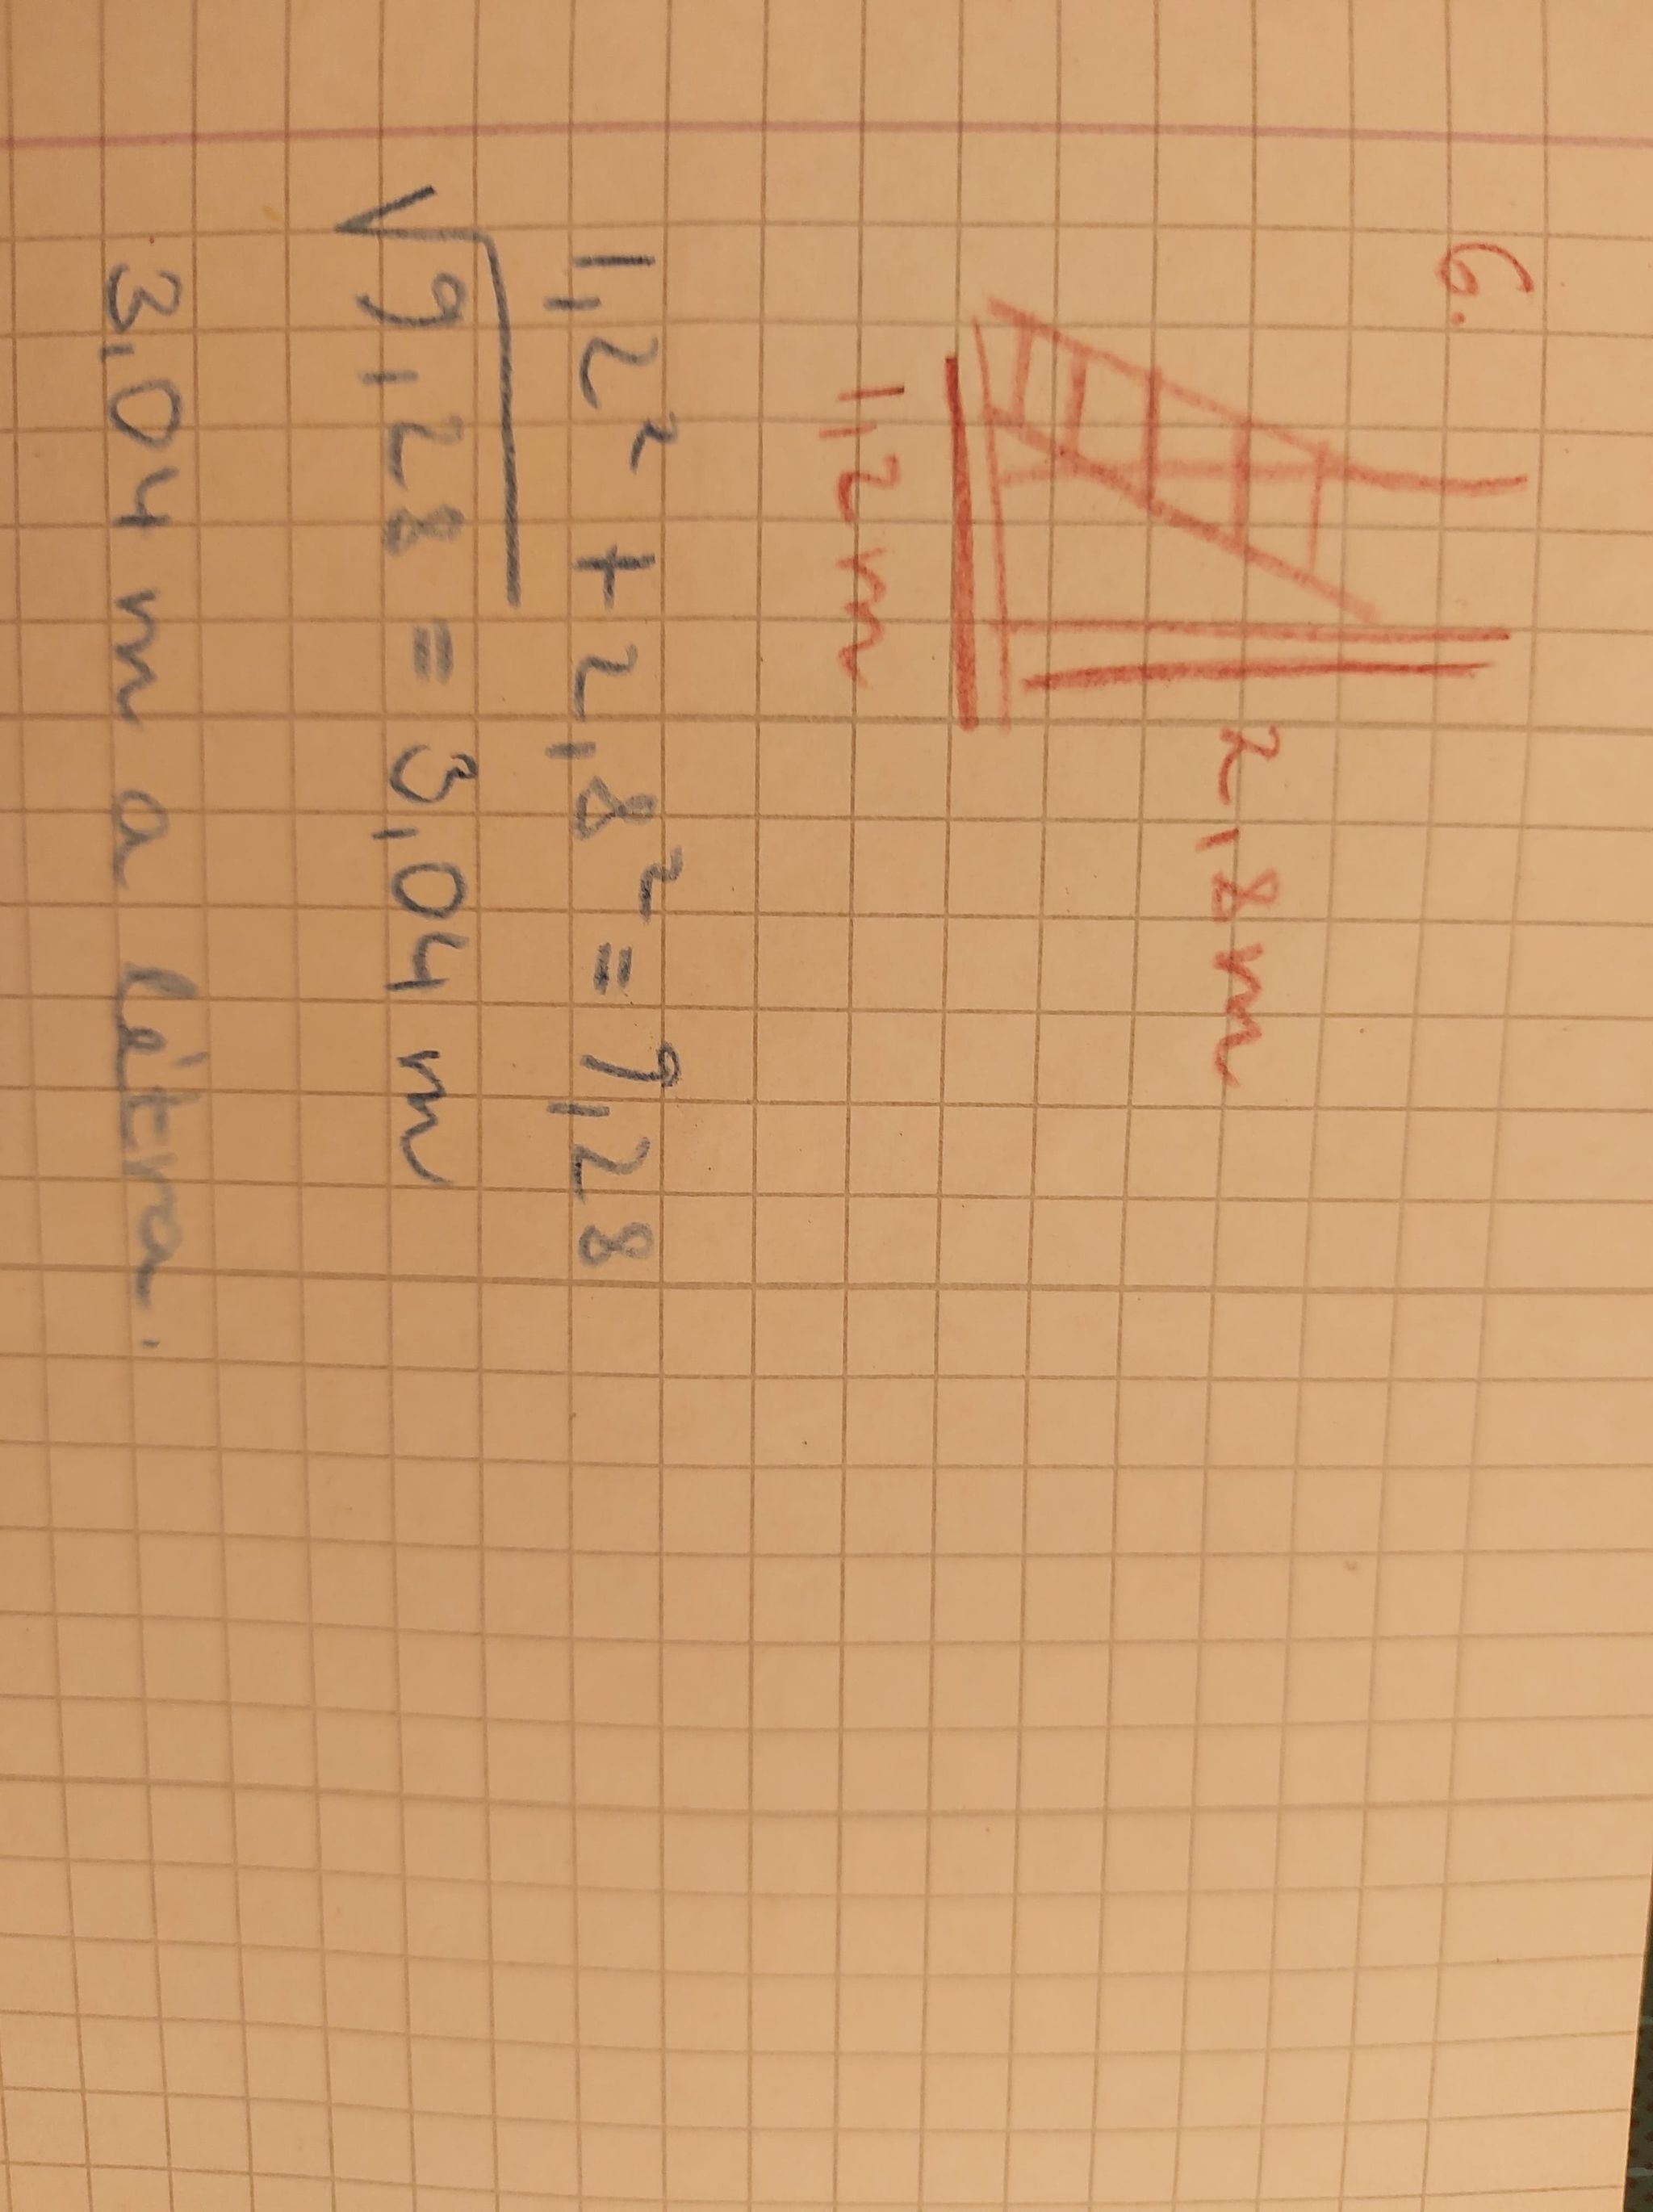 6.
2,8m
1,2m
1,2² + 2,8² = 9,28
√9,28 = 3,04 m
3,04 m a létra.